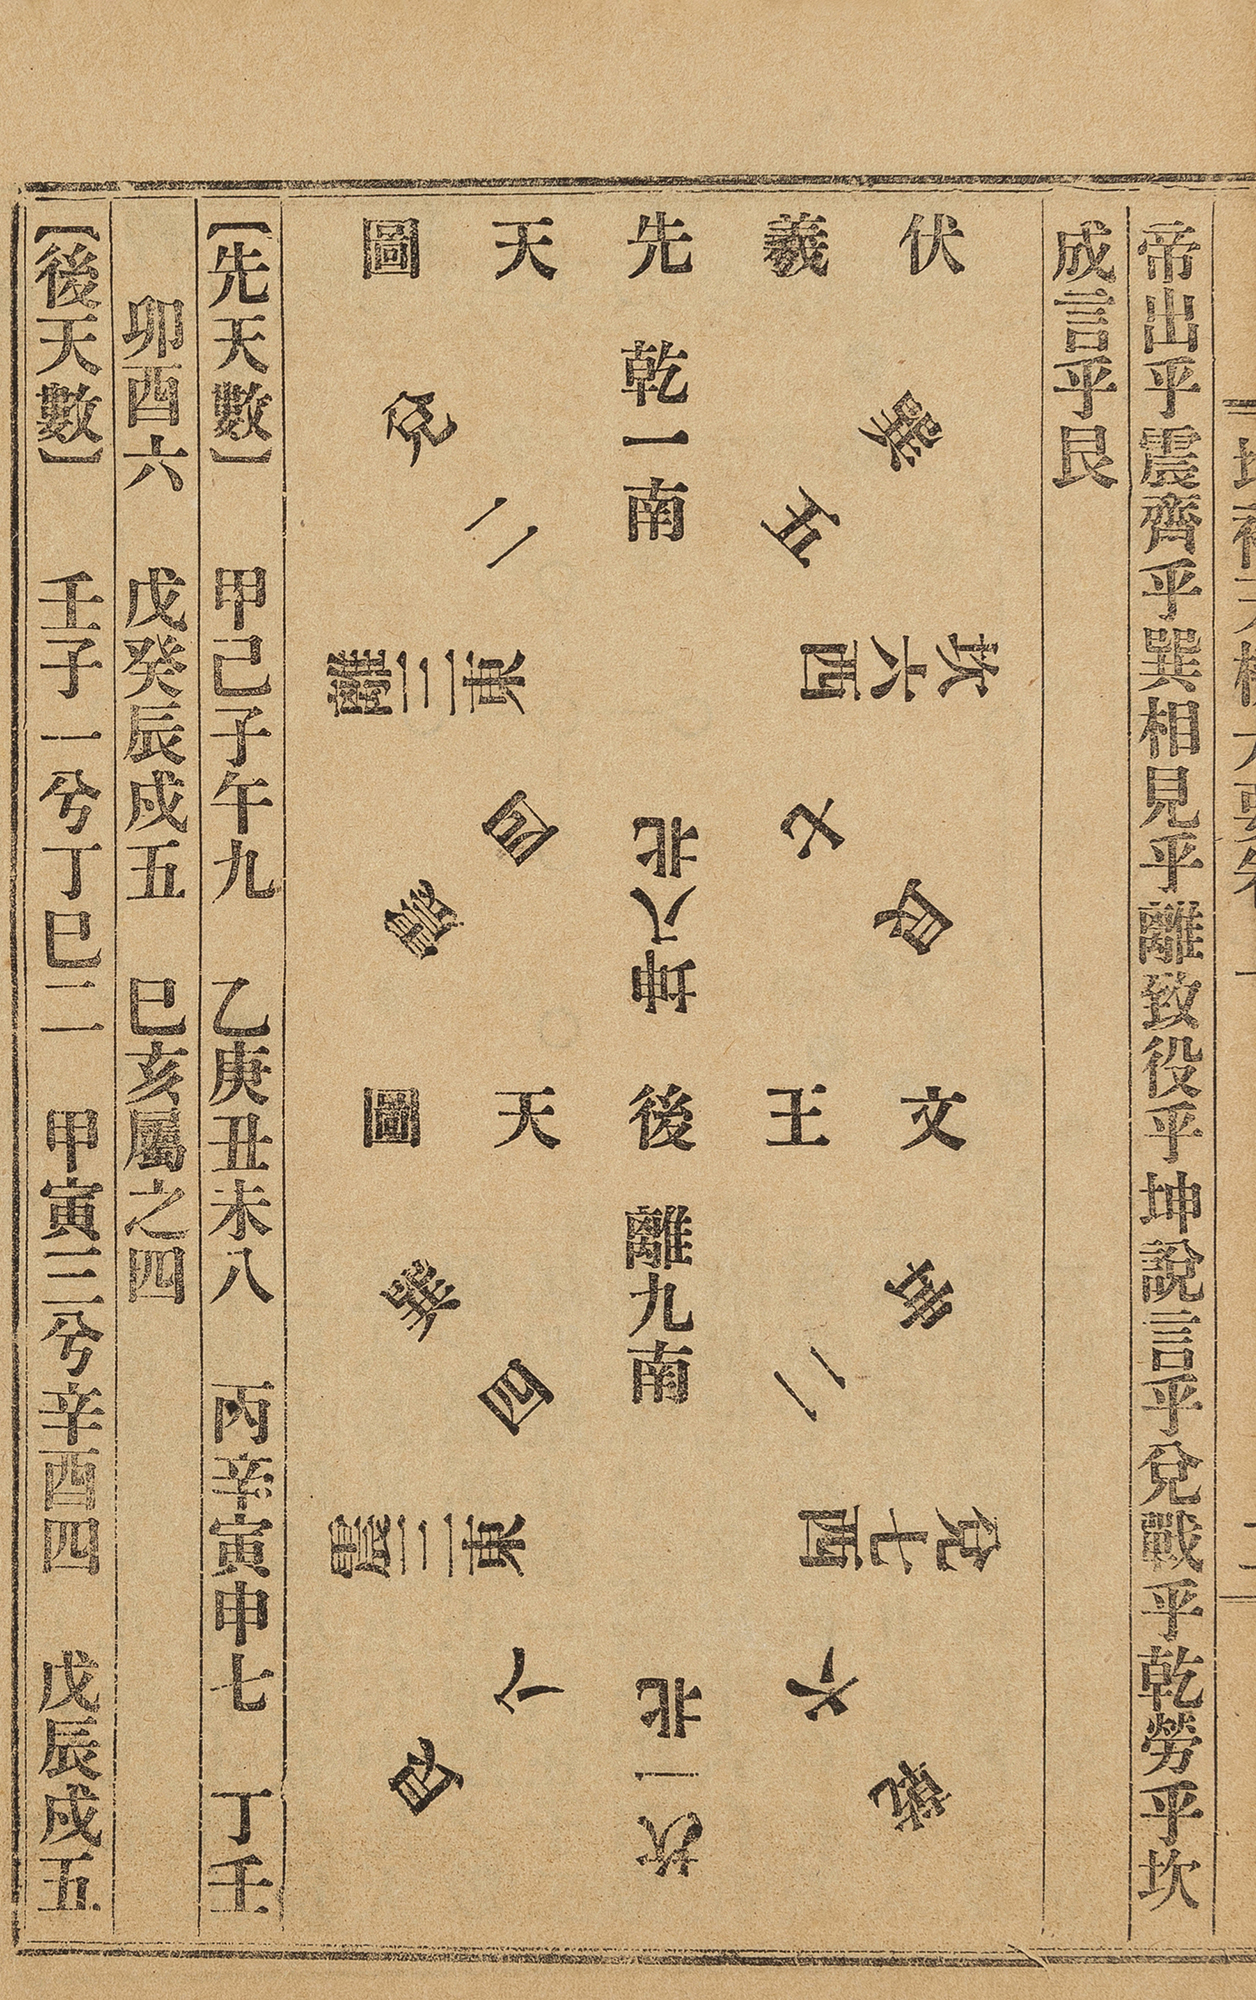 帝出乎震齊乎巽相見乎離致役乎坤說言乎兌戰乎乾勞乎坎
成言乎艮
伏羲先天圖
乾一南
巽五
坎六西
艮七
坤八北
震四
離三東
兌二
文王後天圖
離九南
坤二
兌七西
乾六
坎一北
艮八
震三東
巽四
【先天數】 甲己子午九 乙庚丑未八 丙辛寅申七 丁壬
卯酉六 戊癸辰戌五 巳亥屬之四
【後天數】 壬子一兮丁巳二 甲寅三兮辛酉四 戊辰戌五